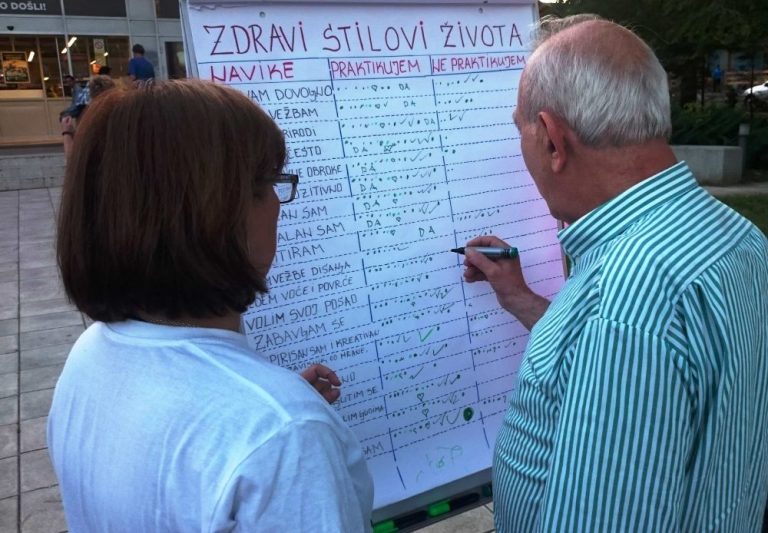 O DOŠLI!
ZDRAVI ŠTILOVI ŽIVOTA
NAVIKE PRAKTIKUJEM NE PRAKTIKUJEM
VAM DOVOGNO DA
VEŽBAM DA
RIRODI DA
ESTO DA
OBROKE DA
ZITIVNO DA
AN SAM DA
ALAN SAM DA
TIRAM DA
VEŽBE DISANJA
DEM VOĆE I POVRĆE
VOLIM SVOJ POSAO
ZABAVGAM SE
PIRISAN SAM I KREATIVAN
NO
SAM